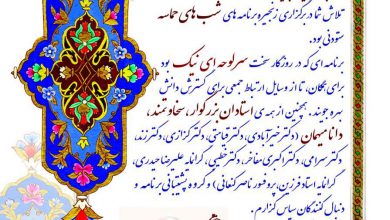 تلاش شما در برگزاری زنجیره برنامه های شب های حماسه
ستودنی بود.
برنامه ای که در روزگار سخت سرلوحه ای نیک بود
برای همگان، تا از وسایل ارتباط جمعی برای گسترش دانش
بهره جویند. همچنین از همه ی استادان بزرگوار، سخاوتمند،
دانا میهمان (دکتر خیرآبادی، دکتر قامتی، دکتر کزازی، دکتر زند،
دکتر سرامی، دکتر اکبری مفاخر، دکتر خطیبی، گرانمایه علیرضا حیدری،
گرانمایه استاد فرزین، پروفسور ناصر کنعانی) و گروه پشتیبانی برنامه و
دنبال کنندگان سپاس گزارم.